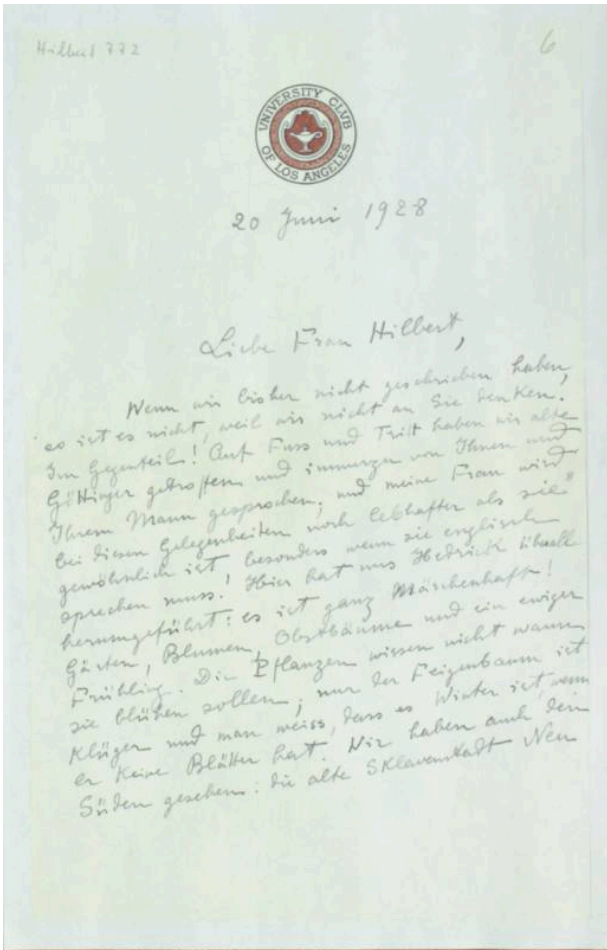 Hilbert 772
6
UNIVERSITY CLUB
OF LOS ANGELES
20 Juni 1928
Liebe Frau Hilbert,
Wenn wir bisher nicht geschrieben haben,
so ist es nicht, weil wir nicht an Sie denken.
Im Gegenteil! Auf Fuss und Tritt haben wir alte
Göttinger getroffen und immerzu von Ihnen und
Ihrem Mann gesprochen; und meine Frau wird
bei diesen Gelegenheiten noch lebhafter als sie
gewöhnlich ist, besonders wenn sie englisch
sprechen muss! Hier hat uns Hedrick überall
herumgeführt: es ist ganz Märchenhaft!
Gärten, Blumen, Obstbäume und ein ewiger
Frühling. Die Pflanzen wissen nicht wann
sie blühen sollen; nur der Feigenbaum ist
Klüger und man weiss, dass es Winter ist, wenn
er Keine Blätter hat. Wir haben auch den
Süden gesehen: die alte Sklavenstadt New